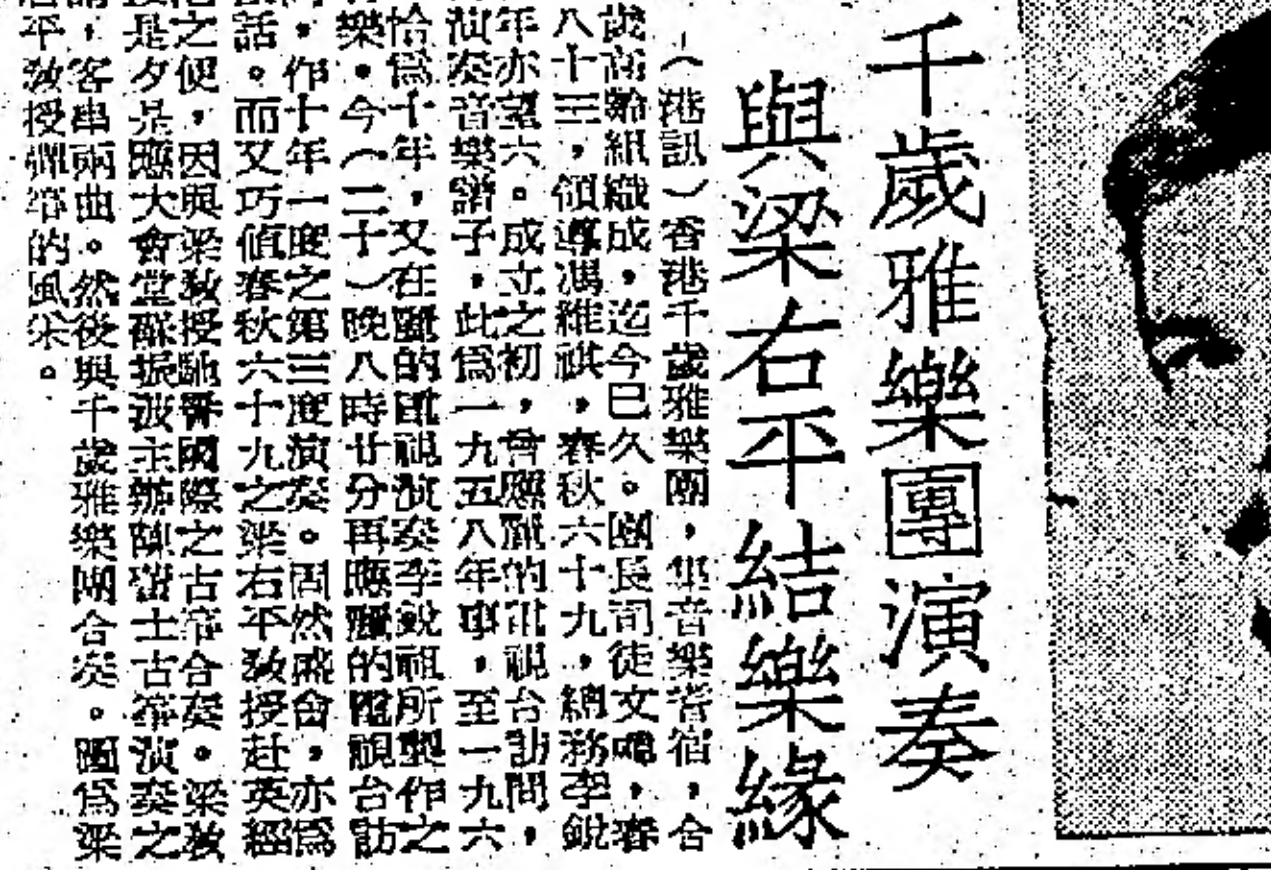 千歲雅樂團演奏
與梁右平結樂緣
（港訊）香港千歲雅樂團，集音樂耆宿，合
歲高齡組織成，迄今已久。團長司徒文，春
八十三，領導馮維祺，春秋六十九，總務李銳
年亦望六。成立之初，曾應麗的電視台訪問，
演奏音樂譜子，此爲一九五八年事，至一九六
恰爲十年，又在麗的電視演奏李銳祖所製作之
樂。今（二十）晚八時廿分再應麗的電視台訪
，作十年一度之第三度演奏。固然盛會，亦爲
話。而又巧值春秋六十九之梁右平教授赴英經
之便，因與梁教授馳譽國際之古箏合奏。梁教
是夕是應大會堂蘇振波主辦陳蕾士古箏演奏之
，客串兩曲。然後與千歲雅樂團合奏。圖爲梁
平教授彈箏的風采。